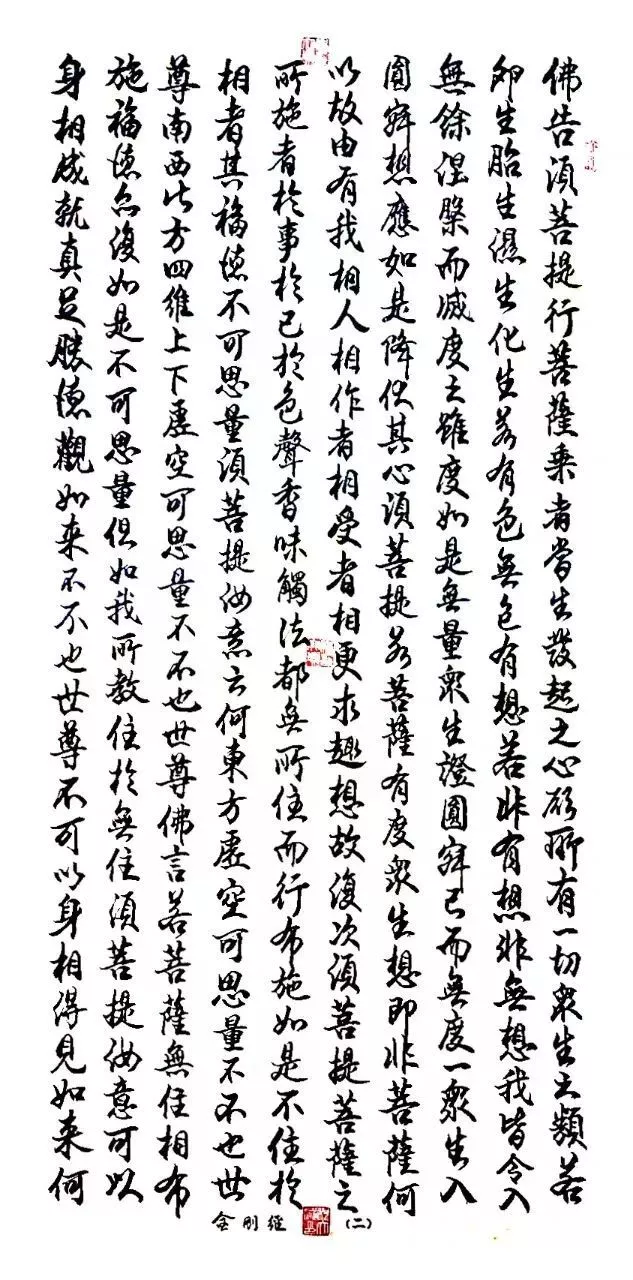 佛告須菩提行菩薩乘者當生發起之心願所有一切眾生之類若
卵生胎生濕生化生若有色無色有想若非有想非無想我皆令入
無餘涅槃而滅度之雖度如是無量眾生證圓寂已而無度一眾生入
圓寂想應如是降伏其心須菩提若菩薩有度眾生想即非菩薩何
以故由有我相人相作者相受者相更求趣想故復次須菩提菩薩之
所施者於事於己於色聲香味觸法都無所住而行布施如是不住於
相者其福德不可思量須菩提汝意云何東方虛空可思量不不也世
尊南西北方四維上下虛空可思量不不也世尊佛言若菩薩無住相布
施福德亦復如是不可思量但如我所教住於無住須菩提汝意可以
身相成就真足勝德觀如来不不也世尊不可以身相得見如来何
金刚经 (二)